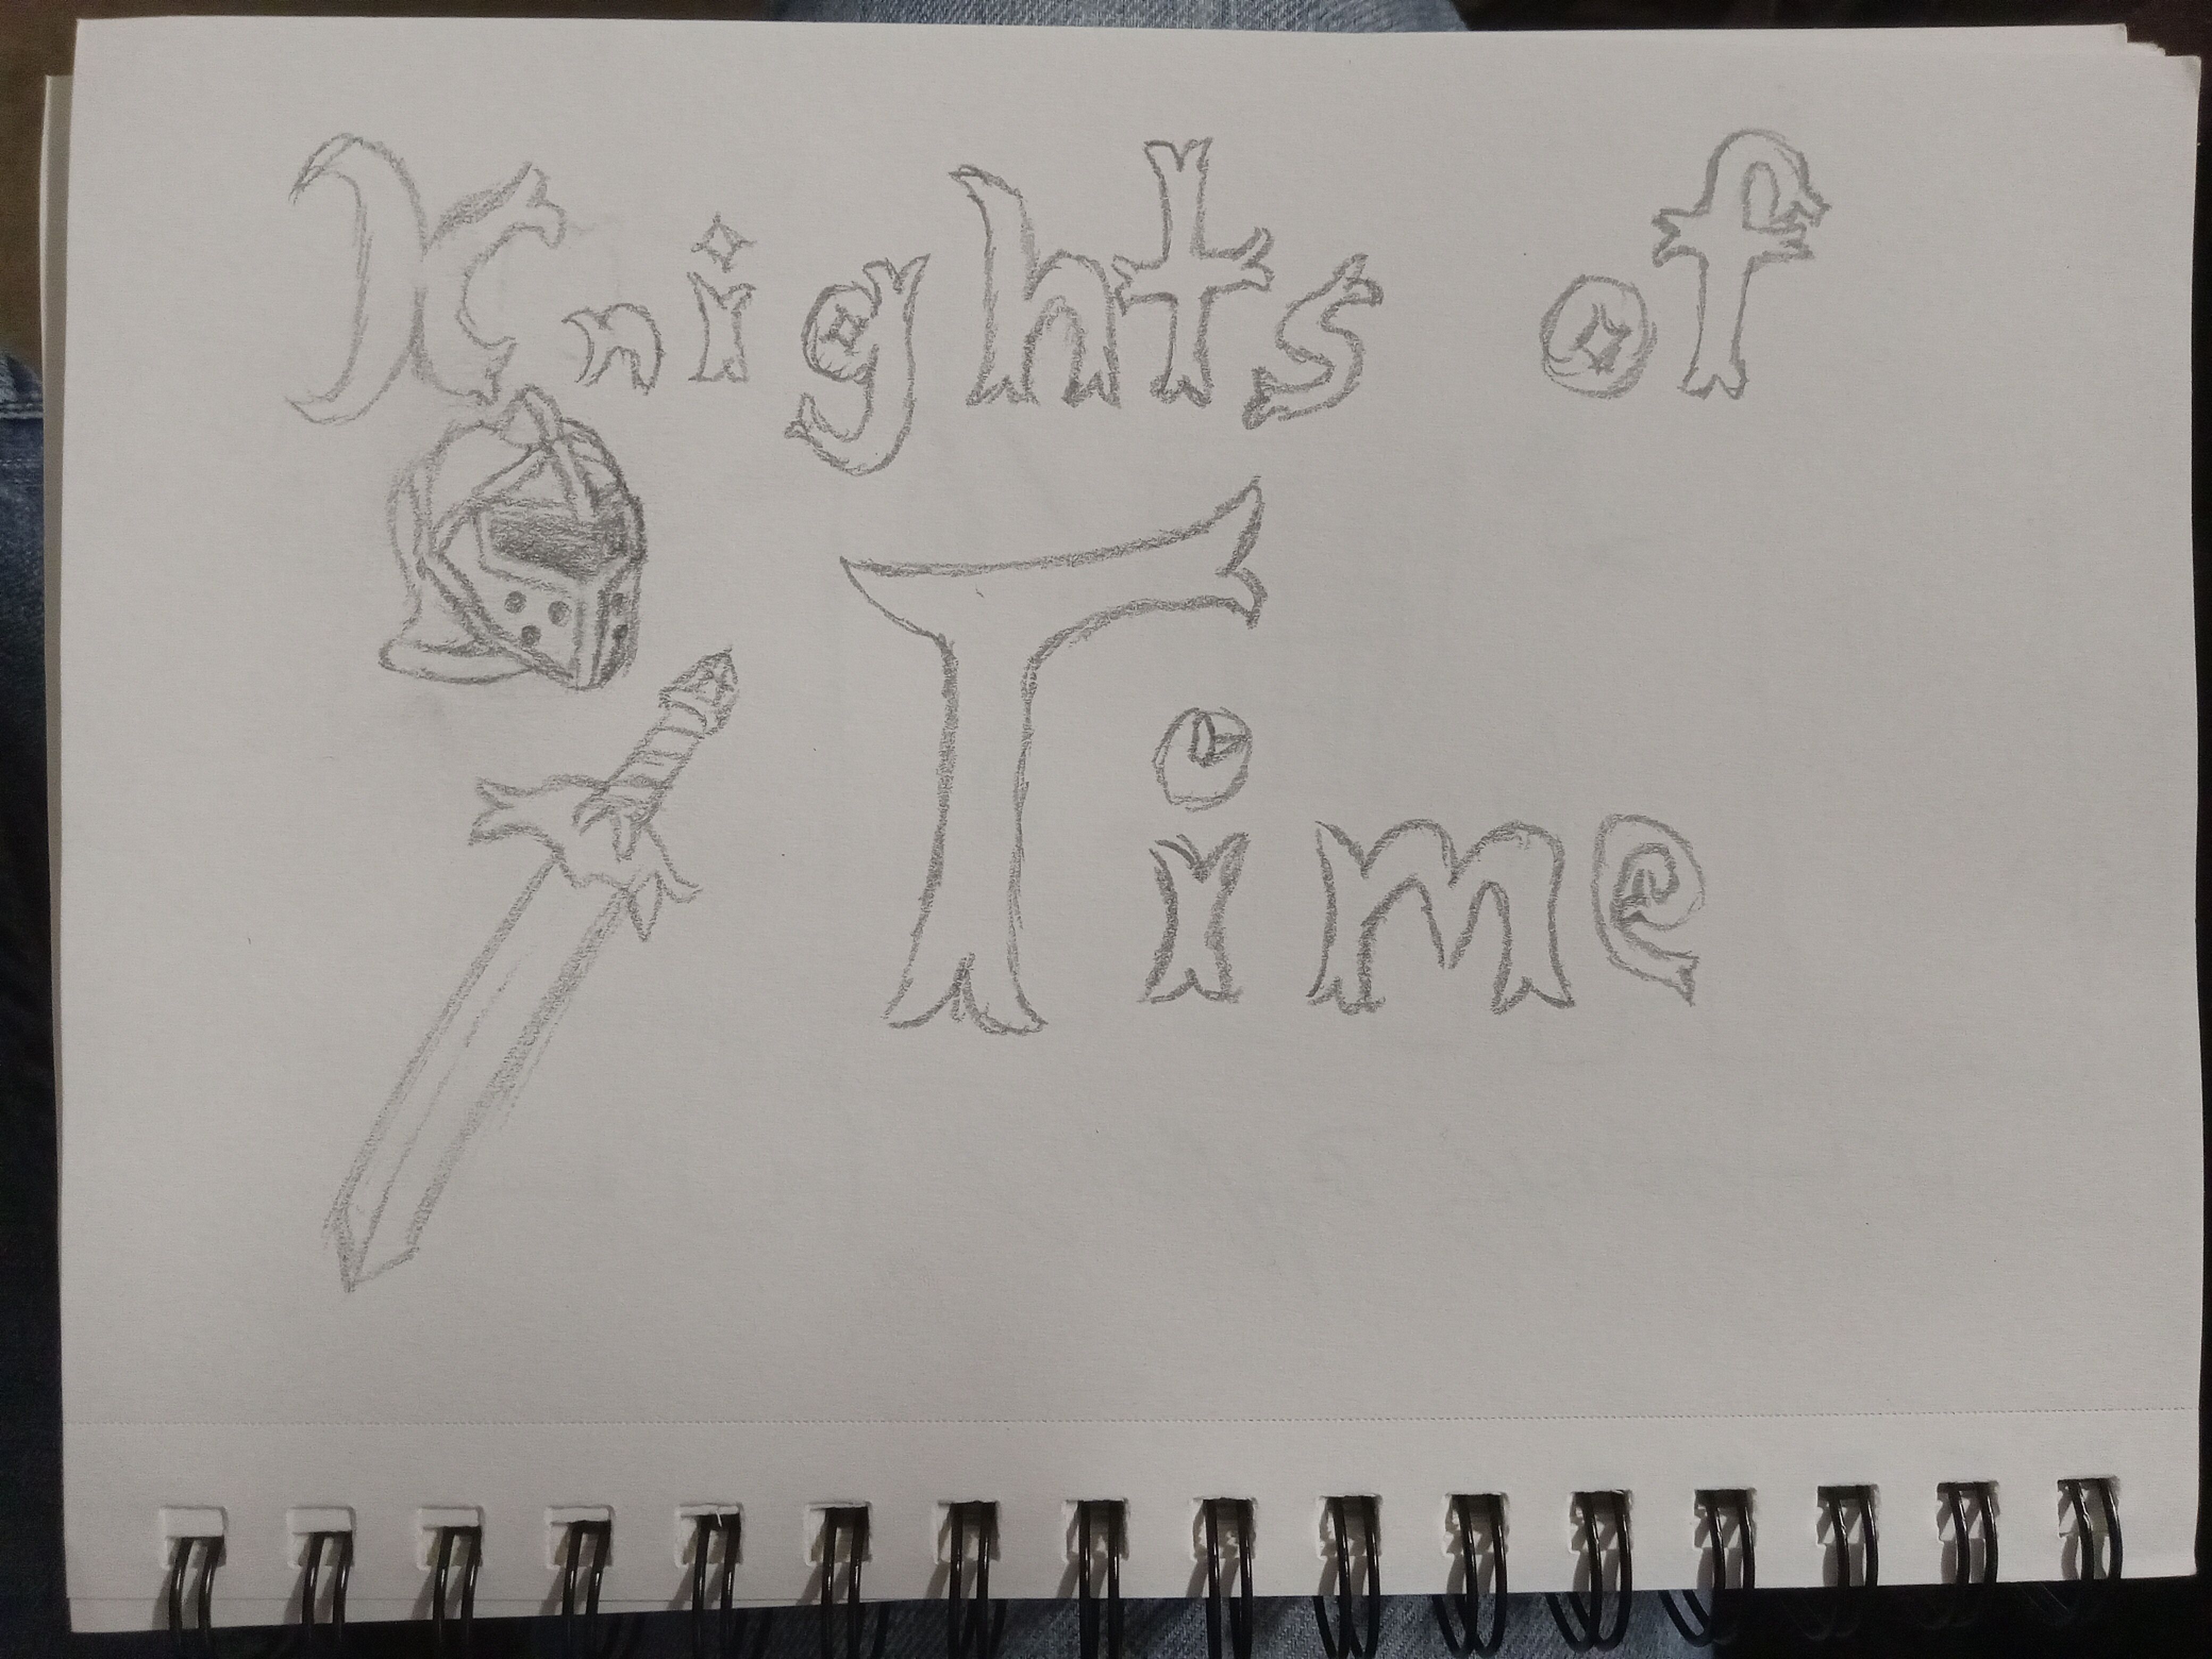 Knights of
Time